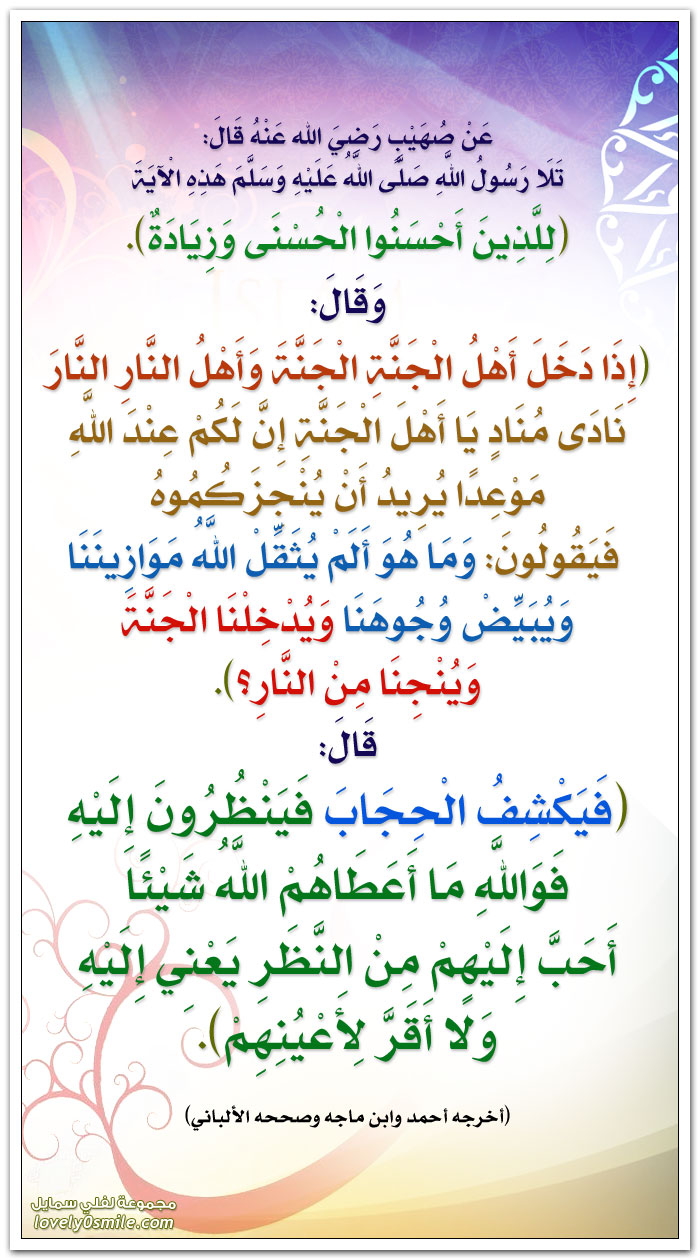 عَنْ صُهَيْبٍ رَضِيَ الله عَنْهُ قَالَ:
تَلَا رَسُولُ اللَّهِ صَلَّى اللَّهُ عَلَيْهِ وَسَلَّمَ هَذِهِ الْآيَةَ
(لِلَّذِينَ أَحْسَنُوا الْحُسْنَى وَزِيَادَةٌ).
وَقَالَ:
(إِذَا دَخَلَ أَهْلُ الْجَنَّةِ الْجَنَّةَ وَأَهْلُ النَّارِ النَّارَ
نَادَى مُنَادٍ يَا أَهْلَ الْجَنَّةِ إِنَّ لَكُمْ عِنْدَ اللَّهِ
مَوْعِدًا يُرِيدُ أَنْ يُنْجِزَكُمُوهُ
فَيَقُولُونَ: وَمَا هُوَ أَلَمْ يُثَقِّلْ اللَّهُ مَوَازِينَنَا
وَيُبَيِّضْ وُجُوهَنَا وَيُدْخِلْنَا الْجَنَّةَ
وَيُنْجِنَا مِنْ النَّارِ؟).
قَالَ:
(فَيَكْشِفُ الْحِجَابَ فَيَنْظُرُونَ إِلَيْهِ
فَوَاللَّهِ مَا أَعَطَاهُمْ اللَّهُ شَيْئًا
أَحَبَّ إِلَيْهِمْ مِنْ النَّظَرِ يَعْنِي إِلَيْهِ
وَلَا أَقَرَّ لِأَعْيُنِهِمْ).
(أخرجه أحمد وابن ماجه وصححه الألباني)
مجموعة لفلي سمايل
lovely0smile.com